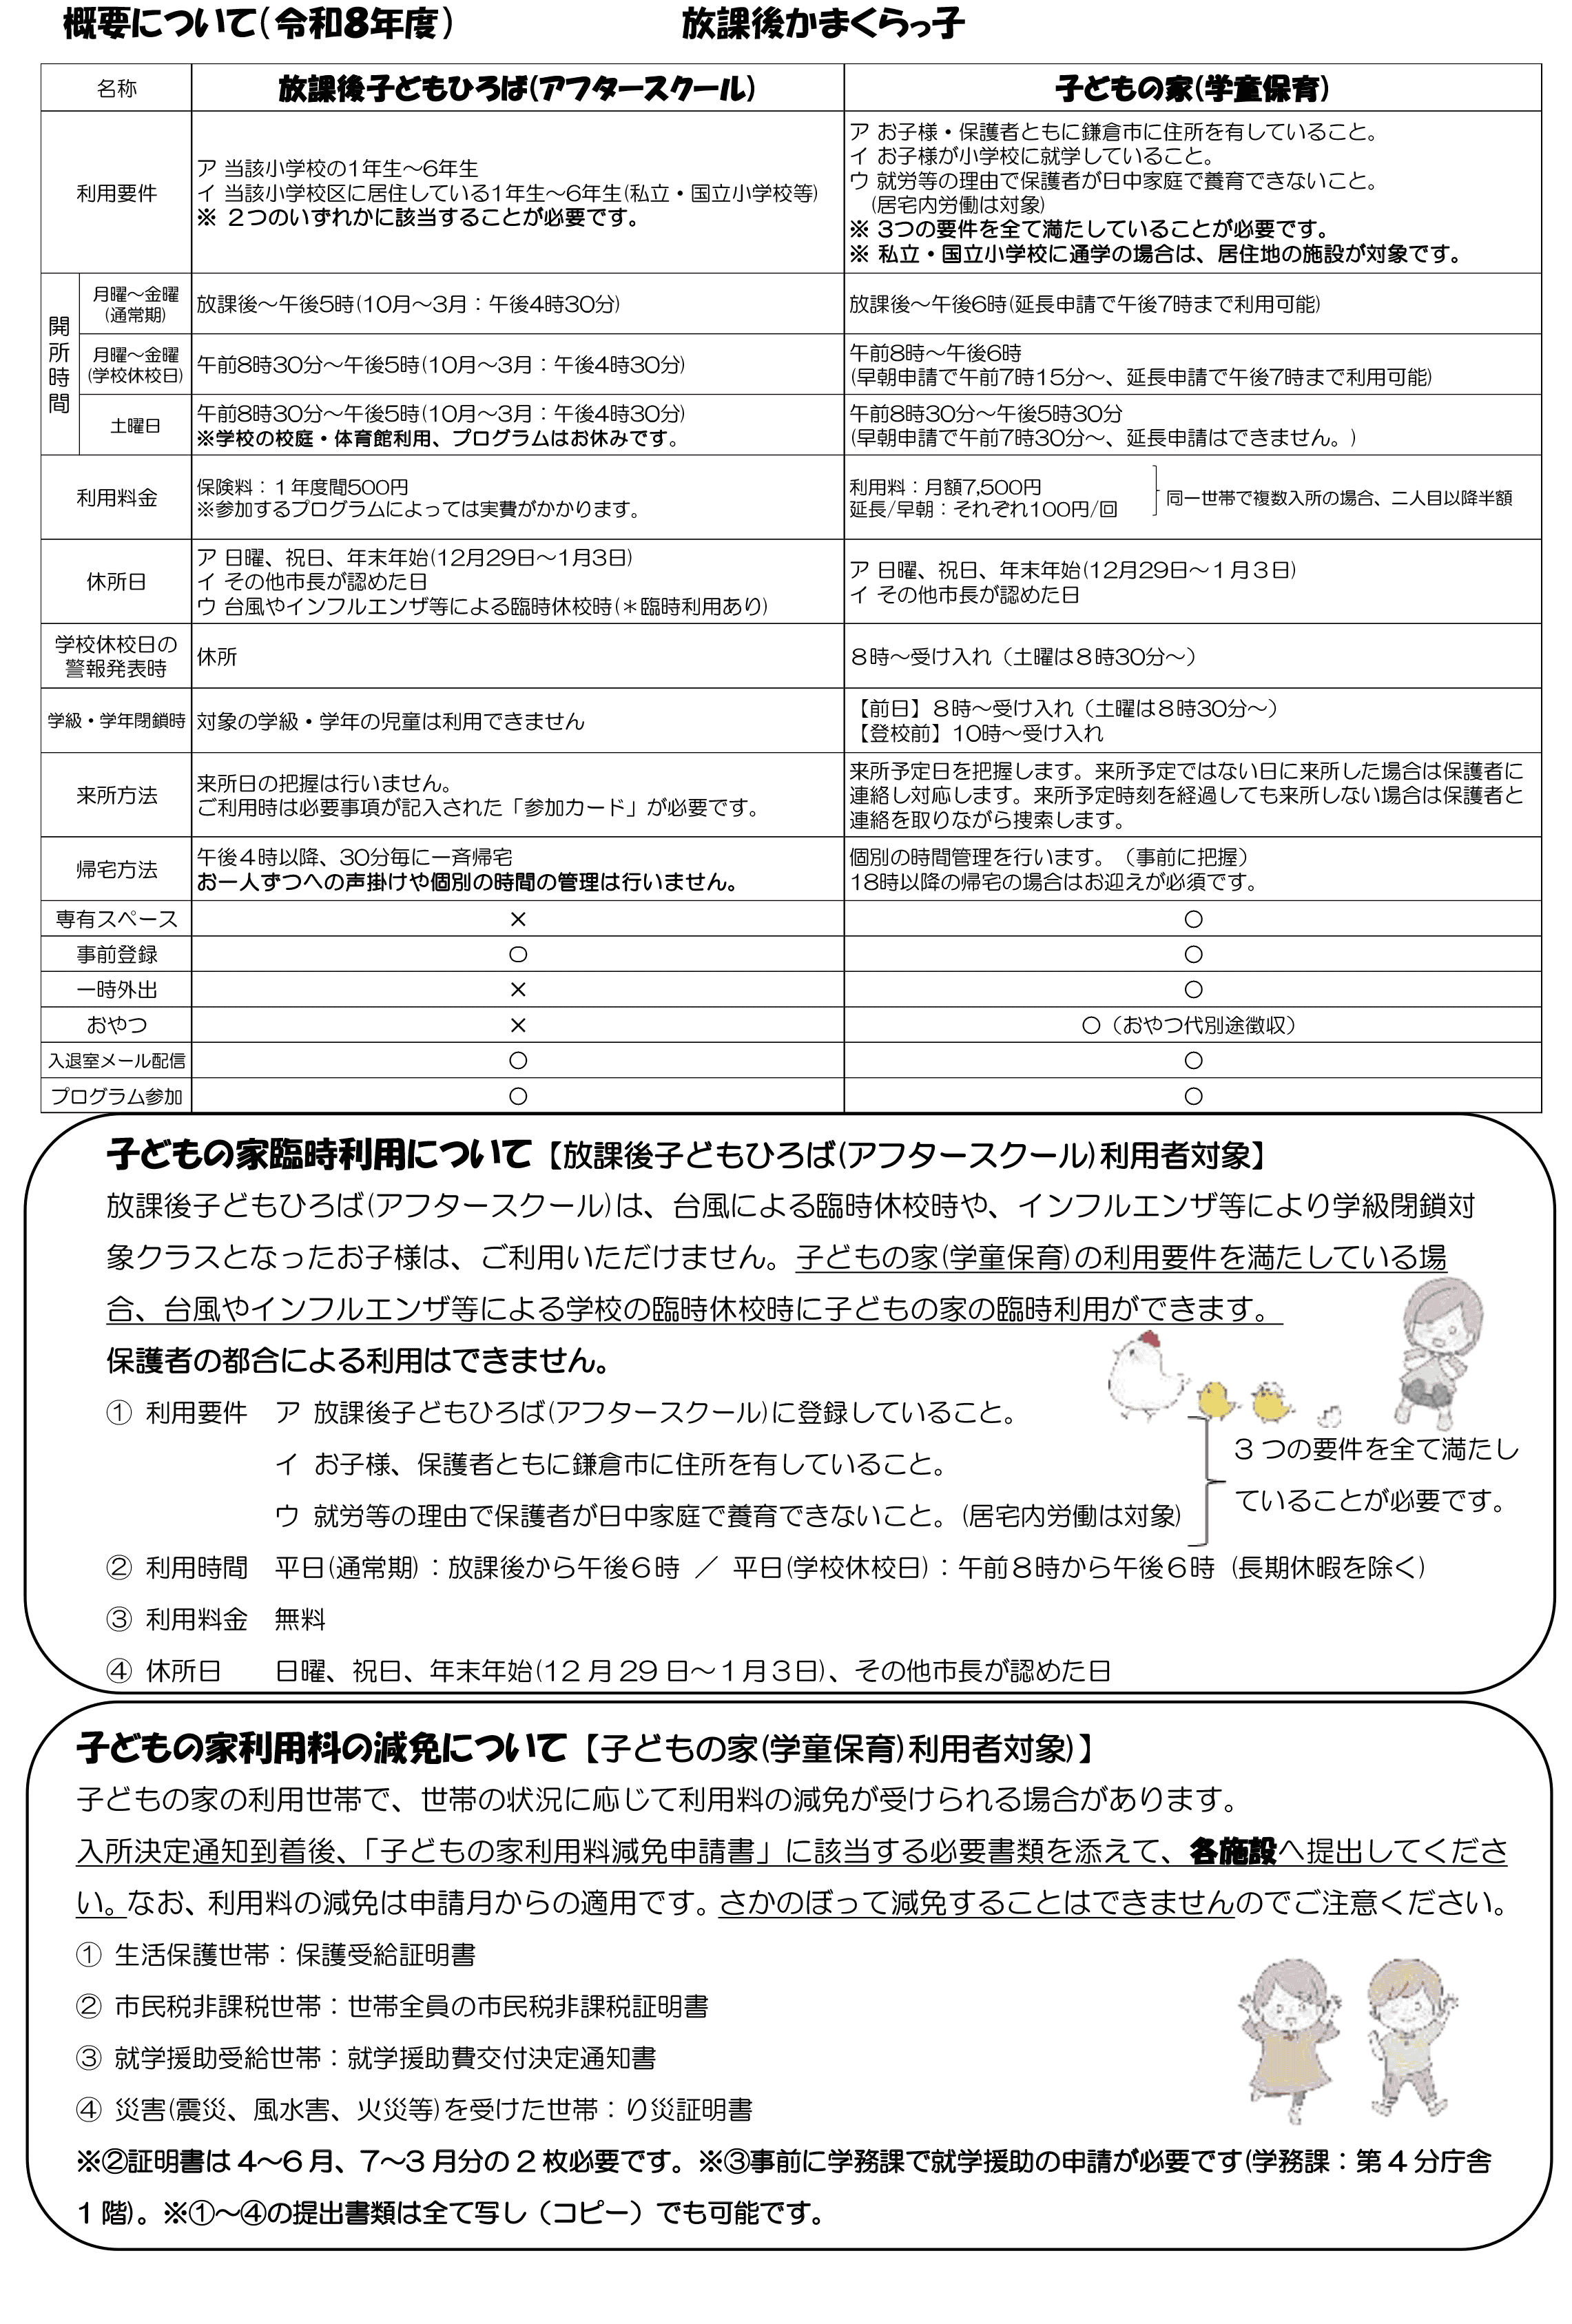 概要について(令和8年度)　放課後かまくらっ子
名称　放課後子どもひろば(アフタースクール)　子どもの家(学童保育)
利用要件
ア 当該小学校の1年生～6年生
イ 当該小学校区に居住している1年生～6年生(私立・国立小学校等)
※ 2つのいずれかに該当することが必要です。
ア お子様・保護者ともに鎌倉市に住所を有していること。
イ お子様が小学校に就学していること。
ウ 就労等の理由で保護者が日中家庭で養育できないこと。
(居宅内労働は対象)
※ 3つの要件を全て満たしていることが必要です。
※ 私立・国立小学校に通学の場合は、居住地の施設が対象です。
開所時間
月曜～金曜
(通常期)
放課後～午後5時(10月～3月：午後4時30分)
放課後～午後6時(延長申請で午後7時まで利用可能)
月曜～金曜
(学校休校日)
午前8時30分～午後5時(10月～3月：午後4時30分)
午前8時～午後6時
(早朝申請で午前7時15分～、延長申請で午後7時まで利用可能)
土曜日
午前8時30分～午後5時(10月～3月：午後4時30分)
※学校の校庭・体育館利用、プログラムはお休みです。
午前8時30分～午後5時30分
(早朝申請で午前7時30分～、延長申請はできません。)
利用料金
保険料：１年度間500円
※参加するプログラムによっては実費がかかります。
利用料：月額7,500円
延長/早朝：それぞれ100円/回
同一世帯で複数入所の場合、二人目以降半額
休所日
ア 日曜、祝日、年末年始(12月29日～1月3日)
イ その他市長が認めた日
ウ 台風やインフルエンザ等による臨時休校時(＊臨時利用あり)
ア 日曜、祝日、年末年始(12月29日～１月３日)
イ その他市長が認めた日
学校休校日の
警報発表時
休所
８時～受け入れ（土曜は８時30分～）
学級・学年閉鎖時
対象の学級・学年の児童は利用できません
【前日】８時～受け入れ（土曜は８時30分～）
【登校前】10時～受け入れ
来所方法
来所日の把握は行いません。
ご利用時は必要事項が記入された「参加カード」が必要です。
来所予定日を把握します。来所予定ではない日に来所した場合は保護者に
連絡し対応します。来所予定時刻を経過しても来所しない場合は保護者と
連絡を取りながら捜索します。
帰宅方法
午後４時以降、30分毎に一斉帰宅
お一人ずつへの声掛けや個別の時間の管理は行いません。
個別の時間管理を行います。（事前に把握）
18時以降の帰宅の場合はお迎えが必須です。
専有スペース　×　〇
事前登録　〇　〇
一時外出　×　〇
おやつ　×　〇（おやつ代別途徴収）
入退室メール配信　〇　〇
プログラム参加　〇　〇
子どもの家臨時利用について【放課後子どもひろば(アフタースクール)利用者対象】
放課後子どもひろば(アフタースクール)は、台風による臨時休校時や、インフルエンザ等により学級閉鎖対
象クラスとなったお子様は、ご利用いただけません。子どもの家(学童保育)の利用要件を満たしている場
合、台風やインフルエンザ等による学校の臨時休校時に子どもの家の臨時利用ができます。
保護者の都合による利用はできません。
① 利用要件　ア 放課後子どもひろば(アフタースクール)に登録していること。
イ お子様、保護者ともに鎌倉市に住所を有していること。
ウ 就労等の理由で保護者が日中家庭で養育できないこと。(居宅内労働は対象)
３つの要件を全て満たし
ていることが必要です。
② 利用時間　平日(通常期)：放課後から午後６時 ／ 平日(学校休校日)：午前８時から午後６時 (長期休暇を除く)
③ 利用料金　無料
④ 休所日　日曜、祝日、年末年始(12月29日～１月３日)、その他市長が認めた日
子どもの家利用料の減免について【子どもの家(学童保育)利用者対象)】
子どもの家の利用世帯で、世帯の状況に応じて利用料の減免が受けられる場合があります。
入所決定通知到着後、「子どもの家利用料減免申請書」に該当する必要書類を添えて、各施設へ提出してくださ
い。なお、利用料の減免は申請月からの適用です。さかのぼって減免することはできませんのでご注意ください。
① 生活保護世帯：保護受給証明書
② 市民税非課税世帯：世帯全員の市民税非課税証明書
③ 就学援助受給世帯：就学援助費交付決定通知書
④ 災害(震災、風水害、火災等)を受けた世帯：り災証明書
※②証明書は4～6月、7～3月分の2枚必要です。※③事前に学務課で就学援助の申請が必要です(学務課：第4分庁舎
1階)。※①～④の提出書類は全て写し（コピー）でも可能です。